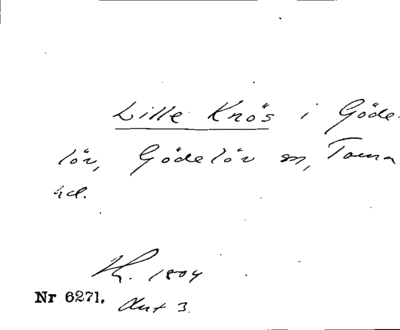 Lille Knös i Göde-
löv, Gödelöv sn, Torna
hd.
K. 1804
Nr 6271. Akt 3.